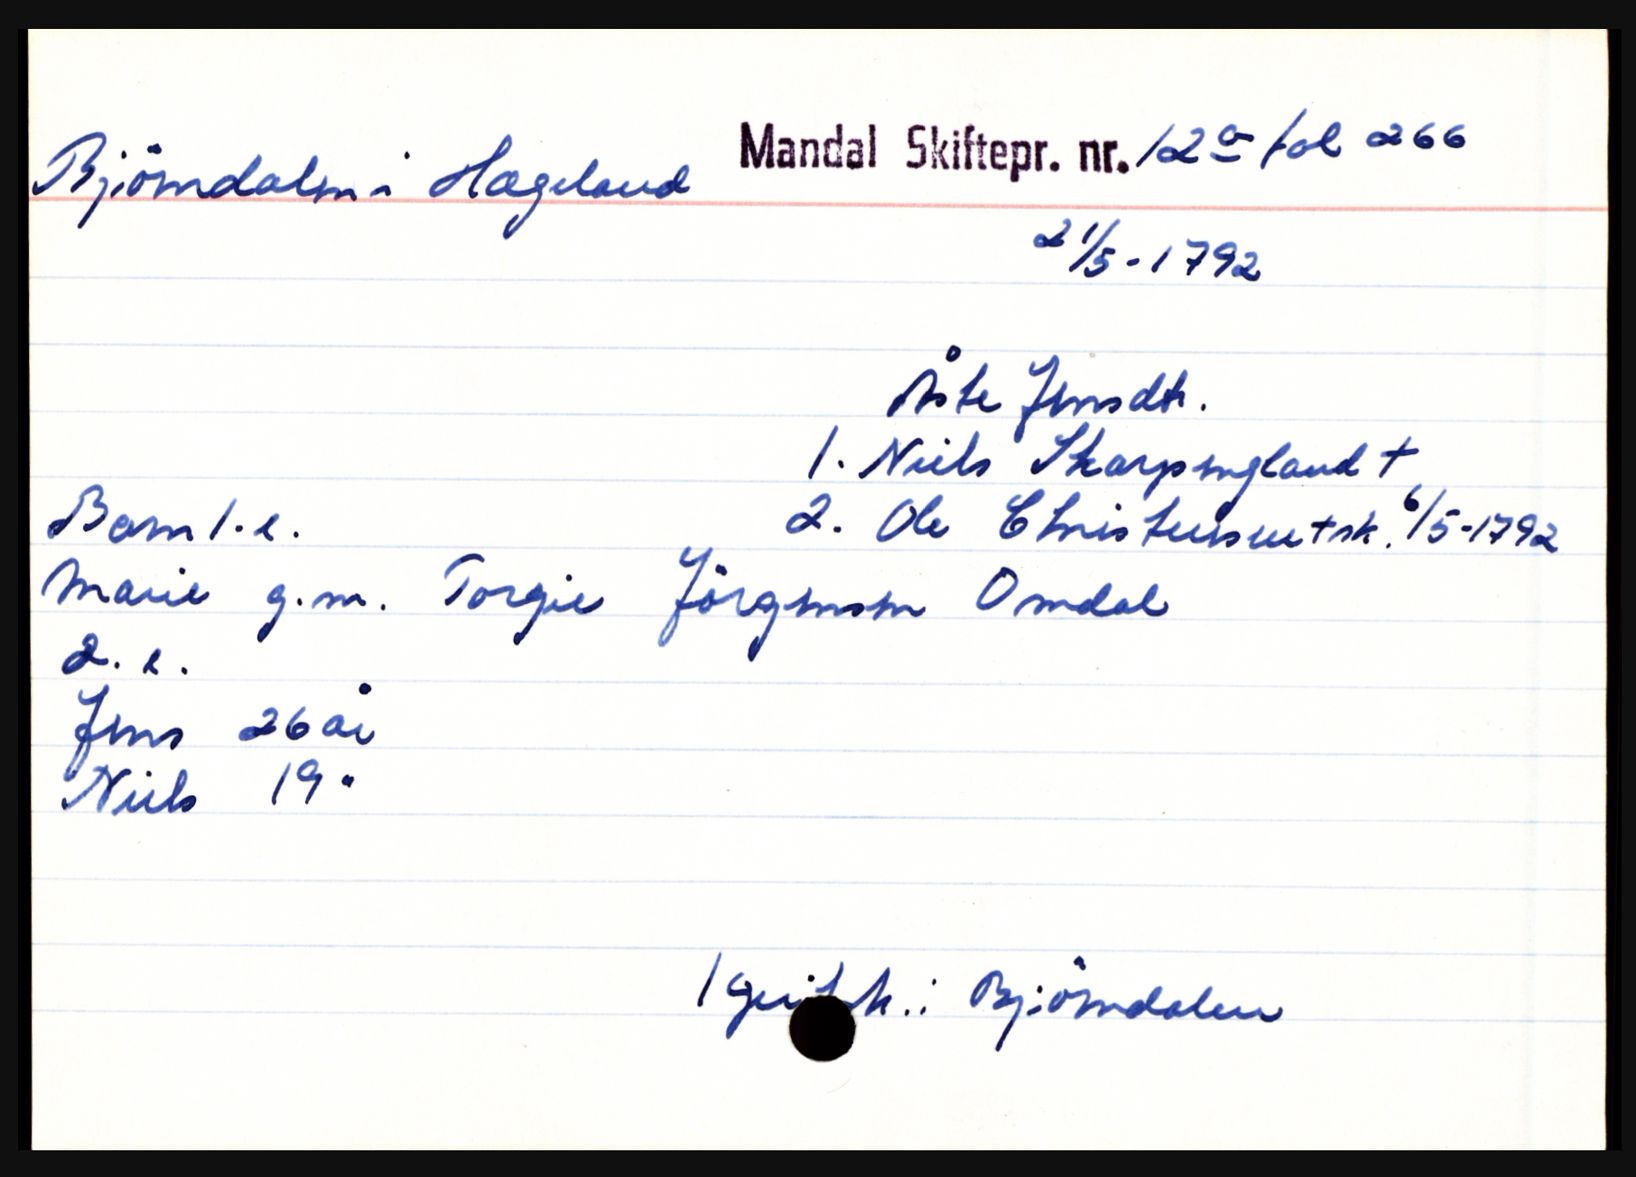 Björndalen i Hægeland Mandal Skiftepr. nr. 12a fol 266
21/5-1792
Åste Jensdtr.
1. Niels Skarpengland †
2. Ole Christensen † sk. 6/5-1792
Barn 1.e.
Marie g.m. Torgie Jörgensen Omdal
2. e.
Jens 26 år
Niels 19 "
1 i Björndalen